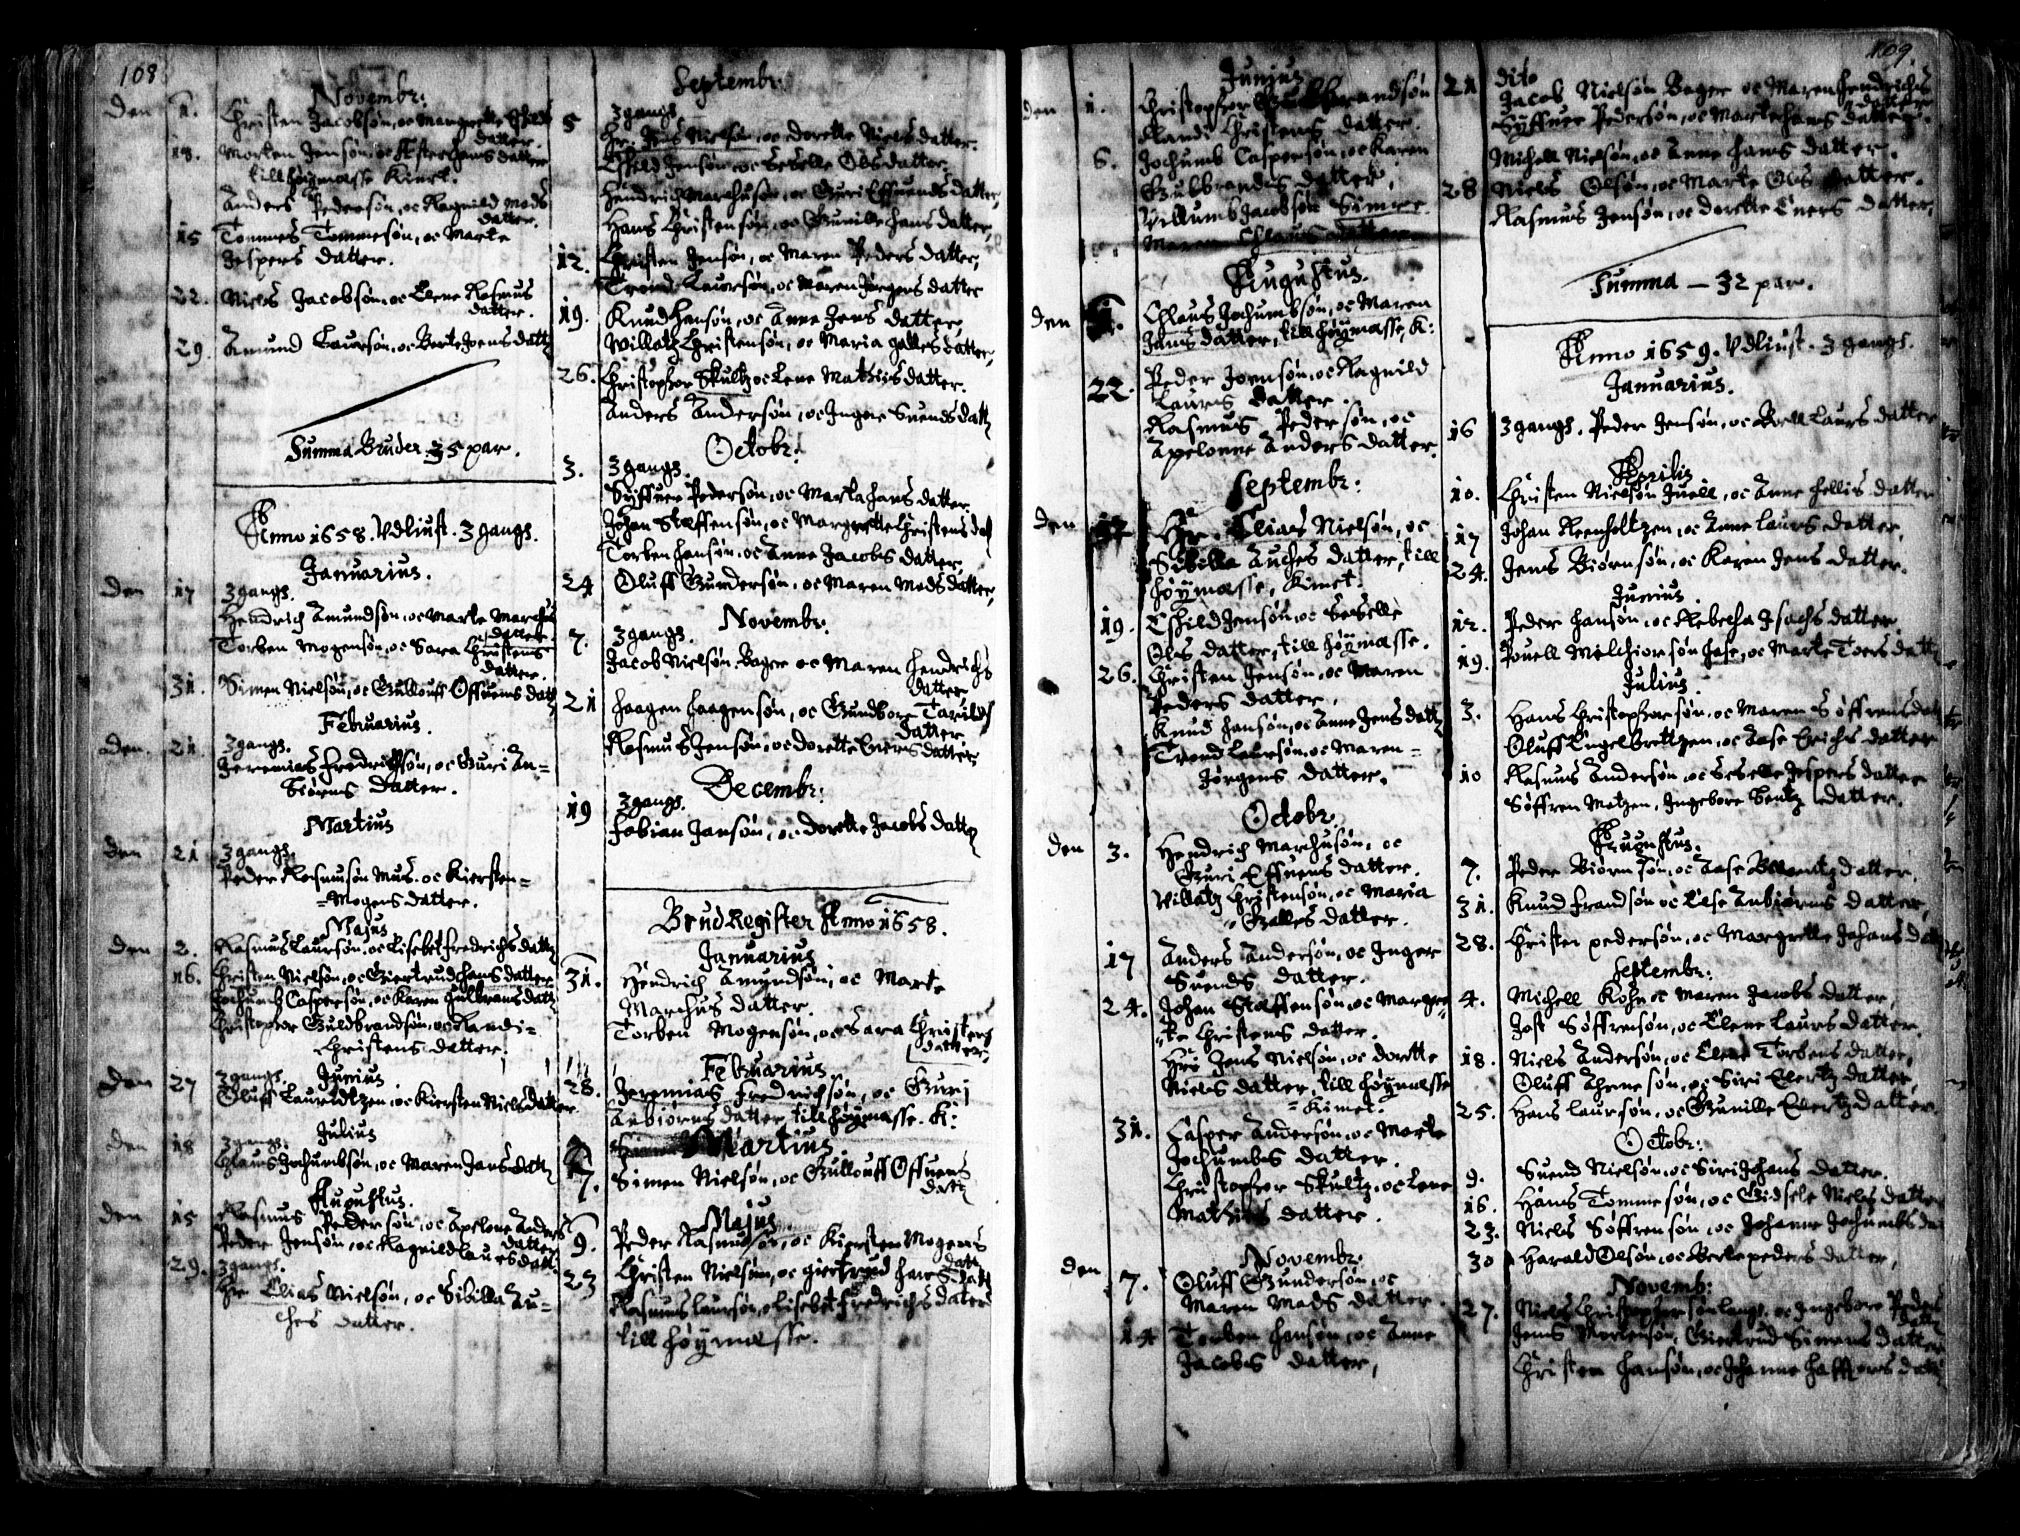 108
Novembr:
Den 1. Christen Jacobsøn, oc Margrette
datter.
18. Morten Jensøn, oc datter
till høymæsse Kimet.
Anders Pedersøn, oc Ragnild Mads
datter.
15 Tommes Tommesøn, oc Marte
Jespers datter.
22. Niels Jacobsøn, oc Elene Rasmus
datter.
29. Amund Laursøn, oc Berte Joens dattr
Summa Bruder 35 par.
Anno 1658. Vdliust. 3 gangs.
Januarius.
Den 17 3 gangs.
Hendrich Amundsøn, oc Marte Marchus
datter.
Torben Mogensøn, oc Sara Christens
datter.
31. Simen Nielsøn, oc Gullouff Offuens dattr
Februarius.
Den 21 3 gangs.
Jeremias Fredrichsøn, oc Guri An=
biørns datter.
Martius
Den 21 3 gangs.
Peder Rasmusøn Mus. oc Kiersten=
=Mogens datter.
Majus
Den 2. Rasmus Laursøn, oc Lisebet Fredrichs dattr
16. Christen Nielsøn, oc Giertrud Hans datter
Jochumb Caspersøn, oc Karen Gulbrans dattr
Christopher Guldbrandsøn, oc Randi=
Christens datter.
Junius.
Den 27 3 gangs.
Oluff Lauridtzen, oc Kiersten Niels datter
Julius
Den 18 3 gangs.
Claus Jochumbsøn, oc Maren Jans dattr
Augustus.
Den 15 Rasmus Pedersøn, oc Apelone Anders
datter
Peder Jensøn, oc Ragnild Laurs dattr
29. 3 gangs.
Hr Elias Nielsøn, oc Sibilla Au=
ches datter.
Septembr:
5 3 gangs.
Hr. Jens Nielsøn, oc Dorette Niels datter.
Eskild Jensøn, oc Seselle Ols datter,
Hendrich Marchusøn, oc Guri Effuends datter,
Hans Christensøn, oc Gunille Hans datter,
12. Christen Jensøn, oc Maren Peders datter,
Trond Laursøn, oc Maren Jørgens datter
19. Knud Hansøn, oc Anne Jens datter,
Willatz Christensøn, oc Maria Galles datter,
26. Christopher Skultz oc Lene Mathis datter.
Anders Andersøn, oc Inger Suends dattr
Octobr:
3. 3 gangs.
Syffuer Pedersøn, oc Marta Hans datter
Johan Staffensøn, oc Margrette Christens dat
Torben Hansøn, oc Anne Jacobs datter,
24 Oluff Gundersøn, oc Maren Mads datter,
Novembr:
7. 3 gangs.
Jacob Nielsøn Bager oc Maren Hendrichs
datter
21 Haagen Haagensøn, oc Gundbore Tarilds
datter
Rasmus Jensøn, oc Dorette Eners datter
Decembr:
19 3 gangs.
Fabian Jansøn, oc Dorette Jacobs dattr
Brud Register Anno 1658.
Januarius
31. Hendrich Amundsøn, oc Marte
Marchus datter.
Torben Mogensøn, oc Sara Christens
datter.
Februarius
28. Jeremias Fredrichsøn, oc Gurj
Anbiørns datter, till høymæsse. K:
Martius
7. Simen Nielsøn, oc Gullouff Offuens
dattr
Majus
9. Peder Rasmusøn, oc Kiersten Mogens
dattr
23 Christen Nielsøn, oc Giertrud Hans dattr
Rasmus Laursøn, oc Lisebet Fredrichs datter
till høymæsse.
109.
Junius
Den 1. Christopher Gulbrandsøn
Randi Christens datter.
6. Jochumb Caspersøn, oc Karen
Gulbrandis datter,
Villumb Jacobsøn
Maren Claus datter
Augustus.
Den 1. Claus Jochumbsøn, oc Maren
Jans datter, till høymæsse, K:
22. Peder Joensøn, oc Ragnild
Laurs datter.
Rasmus Pedersøn, oc
Apelonne Anders datter.
Septembr:
Den 12 Hr. Elias Nielsøn, oc
Sibilla Auches datter, till
høymæsse, Kimet.
19. Eskild Jensøn, oc Seselle
Ols datter, till høymæsse.
26. Christen Jensøn, oc Maren
Peders datter,
Knud Hansøn, oc Anne Jens dattr
Trond Laursøn, oc Maren=
Jørgens datter.
Octobr
Den 3. Hendrich Marchusøn, oc
Guri Effuens datter.
Willatz Christensøn, oc Maria
Galles datter.
17 Anders Andersøn, oc Inger
Suends datter.
24. Johan Staffensøn, oc Margre=
te Christens datter.
Hr: Jens Nielsøn, oc Dorette
Niels datter, till høymæsse
=Kimet.
31. Casper Andersøn, oc Marte
Jochumbs datter.
Christopher Skultz, oc Lene
Mathis datter.
Novembr:
Den 7. Oluff Gundersøn, oc
Maren Mads datter.
14 Torben Hansøn, oc Anne
Jacobs datter,
21 dito
Jacob Nielsøn Bager oc Maren Hendrichs
datter
Syffuer Pedersøn, oc Marte Hans datter.
Michell Nielsøn, oc Anne Hans datter.
28 Niels Olsøn, oc Marte Ols datter.
Rasmus Jensøn, oc Dorette Eners datter,
Summa — 32 par.
Anno 1659. Vdliust. 3 gangs.
Januarius.
16 3 gangs. Peder Jensøn, oc Boell Laurs datter
Aprilis
10. Christen Nielsøn Juell, oc Anne Pellis datter
17 Johan Reenholtzen, oc Anne Laurs datter,
24. Jens Biørnsøn, oc Karen Jens datter.
Junius.
12. Peder Hansøn, oc Rebecha Isachs datter
19. Pouell Melchiorsøn Hase, oc Marte Toers dattr
Julius
3. Hans Christophersøn, oc Maren Søffrens dat
Oluff Engelbrettzen, oc Aase Erichs datter
10 Rasmus Andersøn, oc Seselle Jespers datter
Søffren Matzen, Ingebore Bentz datter.
Augustus.
7. Peder Biørnsøn, oc Aase datter,
31. Knud Frandsøn oc Else Anbiørns datter,
28. Christen Pedersøn, oc Margrette Johans dat
Septembr:
4. Michell Kohn oc Maren Jacobs datter,
Jost Søffrensøn, oc Elene Laurs datter.
18. Niels Andersøn, oc Elene Torbens datter,
Oluff Arnesøn, oc Siri Evertz datter,
25. Hans Laursøn, oc Gunille Evertz datter
Octobr:
9. Suend Nielsøn, oc Siri Johans datter.
16. Hans Tommesøn, oc Gidsele Niels datter
23. Niels Søffrensøn, oc Johanne Jochumbs da
30 Harald Olsøn, oc Berte Peders datter,
Novemb:
27. Niels Christophersøn Lange, oc Ingebore Peders
dattr
Jens Mortensøn, Giertrud Simens datter
Christen Hansøn, oc Johanne dattr